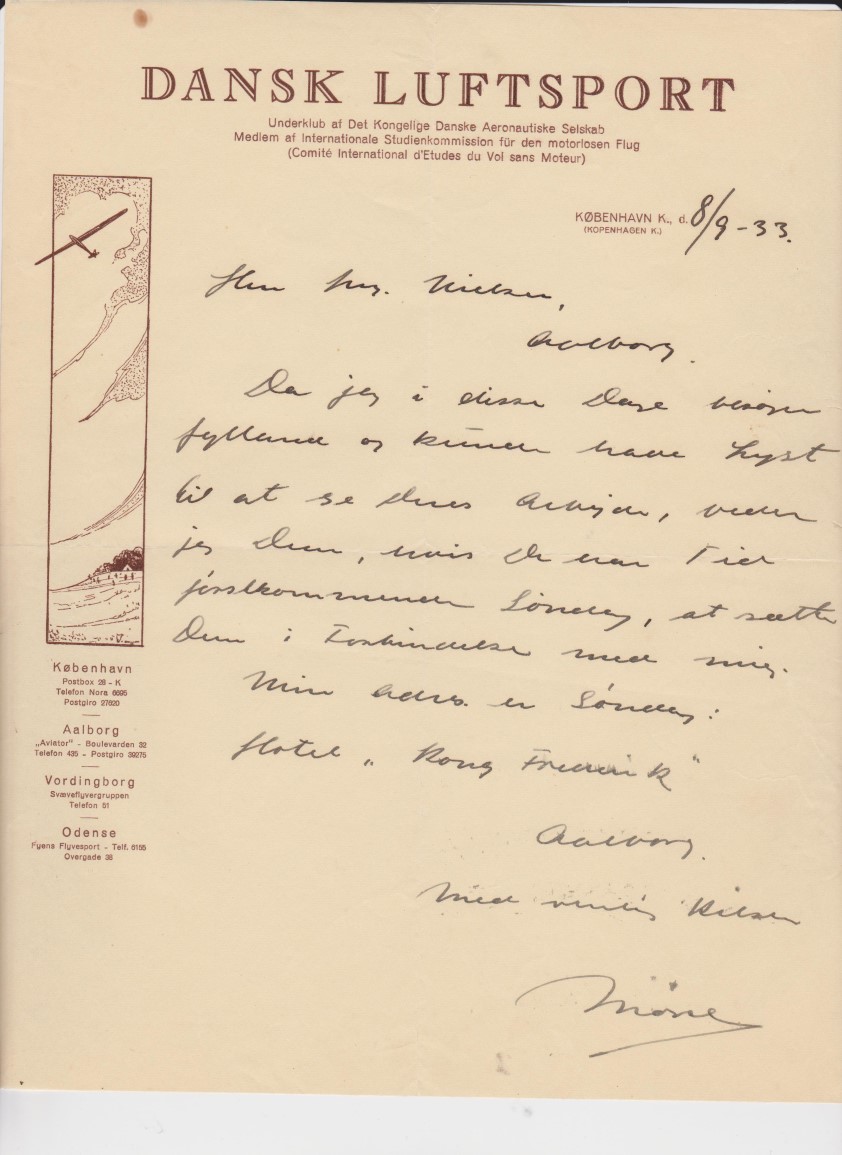 DANSK LUFTSPORT
Underklub af Det Kongelige Danske Aeronautiske Selskab
Medlem af Internationale Studienkommission für den motorlosen Flug
(Comité International d'Etudes du Vol sans Moteur)
KØBENHAVN K., d. 8/9 - 33.
(KOPENHAGEN K.)
Herr Ing. Nielsen,
Aalborg.
Da jeg i disse Dage besøger
Jylland og kunde have Lyst
til at se Deres Arbejde, beder
jeg Dem, hvis De har Tid
førstkommende Søndag, at sætte
Dem i Forbindelse med mig.
Min Adrs. er Søndag:
Hotel „Kong Frederik"
Aalborg.
Med venlig Hilsen
København
Postbox 28 - K
Telefon Nora 6695
Postgiro 27620
Aalborg
„Aviator" - Boulevarden 32
Telefon 435 - Postgiro 39275
Vordingborg
Svæveflyvergruppen
Telefon 51
Odense
Fyens Flyvesport - Telf. 6155
Overgade 38